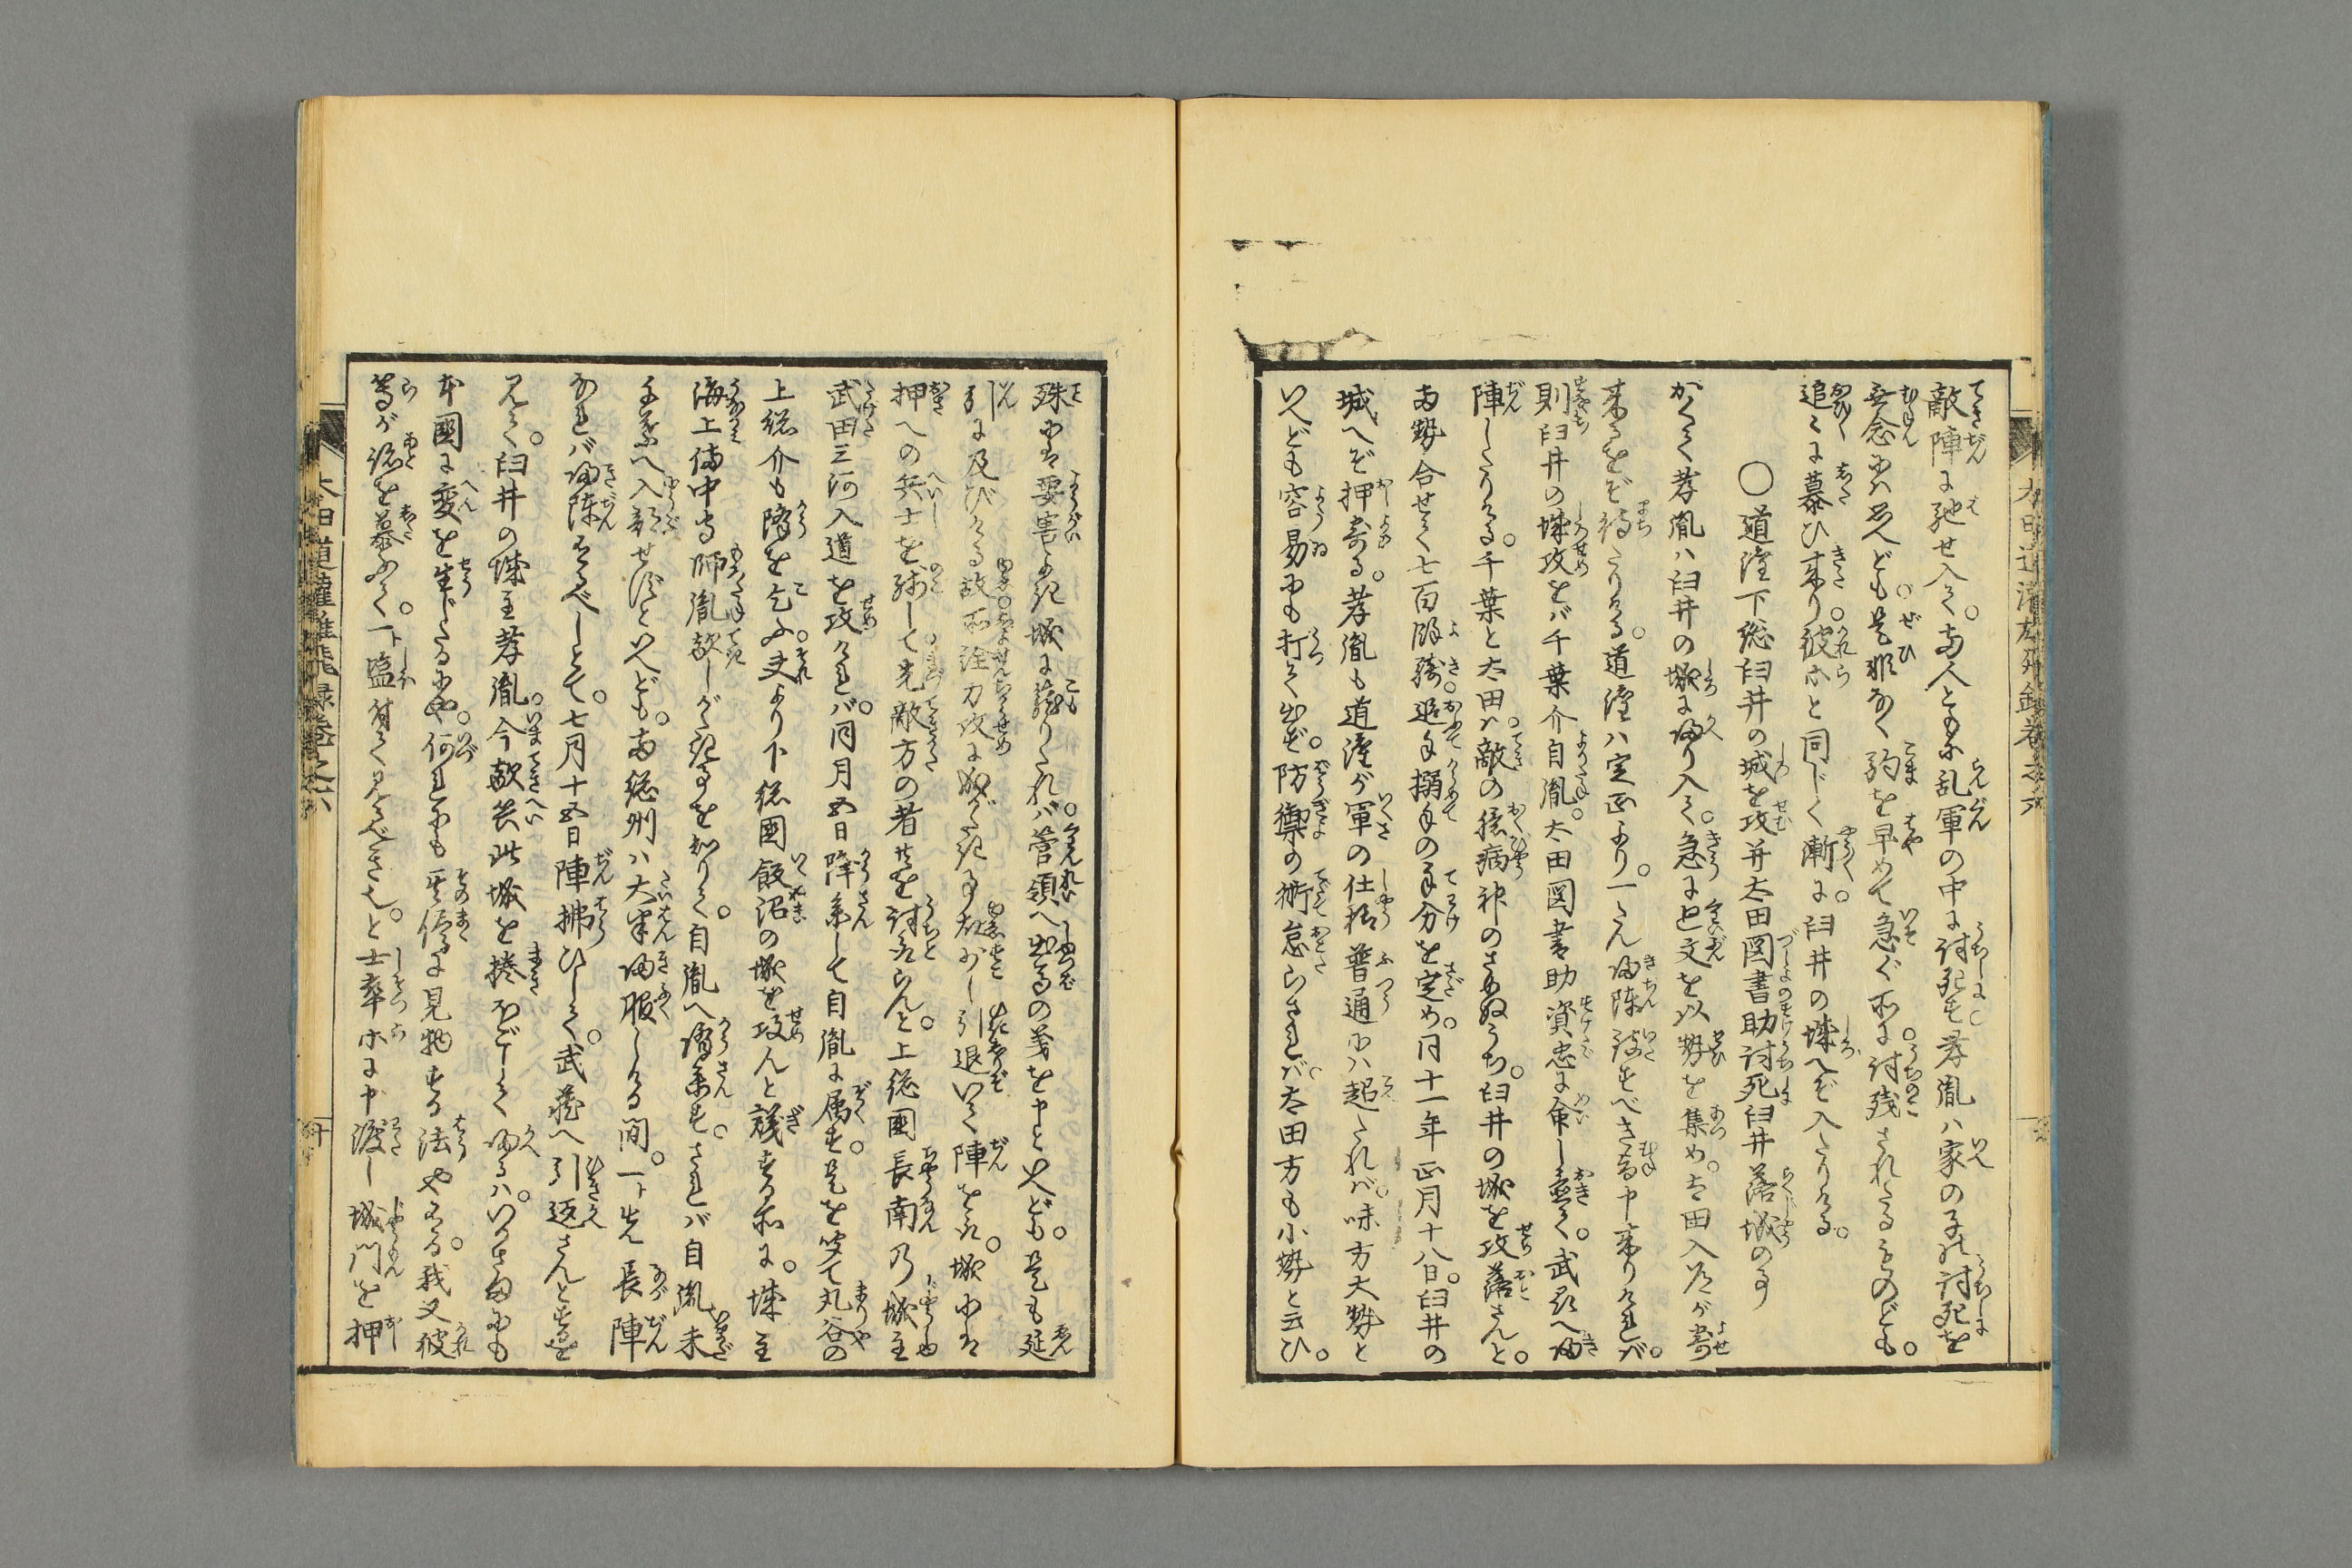 敵陣に馳せ入て。両人ともに乱軍の中に討死す。孝胤ハ家の子の討死を
無念にハ思へども。是非なく駒を早めて急ぐ所に。討残されたるものども。
追々に慕ひ来り。彼等と同じく漸に。臼井の城へぞ入たりける。
〇道灌下総臼井の城を攻并太田図書助討死臼井落城の事
かくて孝胤ハ臼井の城に帰り入て。急に廻文を以勢を集め。太田入道が寄
来るをぞ待たりける。道灌ハ定正より。一たん帰陣致すべき旨申来りけれバ。
則臼井の城攻をバ千葉介自胤。太田図書助資忠に命し置て。武州へ帰
陣したりける。千葉と太田ハ。敵の臆病神のさめぬうち。臼井の城を攻落さんと。
両勢合せて七百余騎。追手搦手の手分を定め。同十一年正月十八日。臼井の
城へぞ押寄る。孝胤も道灌が軍の仕様普通にハ超たれバ。味方大勢と
いへども容易にも打て出ず。防禦の術怠らざれバ。太田方も小勢と云ひ。
殊に要害よき城に籠りたれバ。管領へ出馬の義を申といへども。是も延
引に及びける故。所詮力攻に成がたき事なれバ。少し引退いて陣を取。城にハ
押への兵士を残して先敵方の者共を討取らんと。上総國長南乃城主
武田三河入道を攻けれバ。同月五日降参して自胤に属す。是を聞て丸谷の
上総介も降を乞ふ。夫より下総國飯沼の城を攻んと議する所に。城主
海上備中守師胤敵しがたき事を知りて。自胤へ降参す。されバ自胤未
千葉へ入部せずといへども。両総州ハ大半帰服しける間。一ト先長陣
なれバ帰陣すべしとて。七月十五日陣拂ひして。武蔵へ引返さんとするを
見て。臼井の城主孝胤。今敵兵此城を捲ほぐして帰るハ。いかさまにも
本國に変を生じたるにや。何れにも其儘に見物する法やある。我又彼
等が跡を慕ふて。一ト塩付て見るべき也。と士卒等に申渡し城門を押
太田道灌雄飛録巻之六